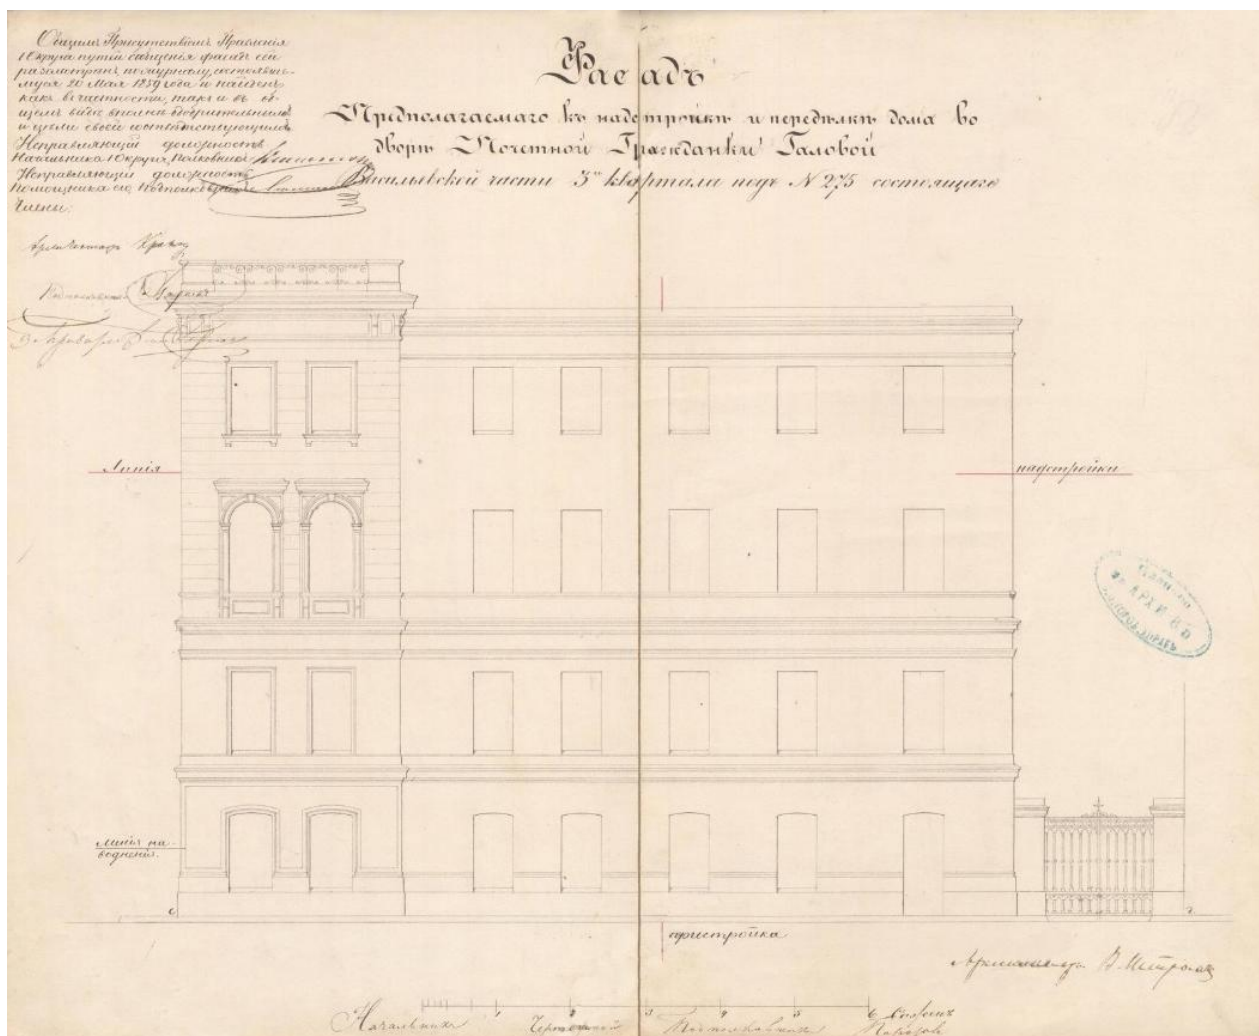 Общимъ Присутствіемъ Правленія
I Округа путей сообщенія фасадъ сей
разсмотренъ, по журналу, состоявше-
муся 20 Мая 1859 года и найденъ
какъ въ частности, такъ и въ об-
щемъ видѣ вполнѣ одобрительнымъ
и цѣли своей соотвѣтствующимъ.
Исправляющій должность
Начальника I Округа, Полковникъ
Исправляющій должность
Помощника его Подполковникъ
Члены:
Архитекторъ
Фасадъ
Предполагаемаго къ надстройкѣ и передѣлкѣ дома во
дворѣ Почетной Гражданки Галовой
Васильевской части 3го квартала подъ N 275 состоящаго
Линія
надстройки
линія на-
водненія.
пристройка
Архитекторъ
1 2 3 4 5 6 Сажень
Начальникъ Чертежной Подполковникъ